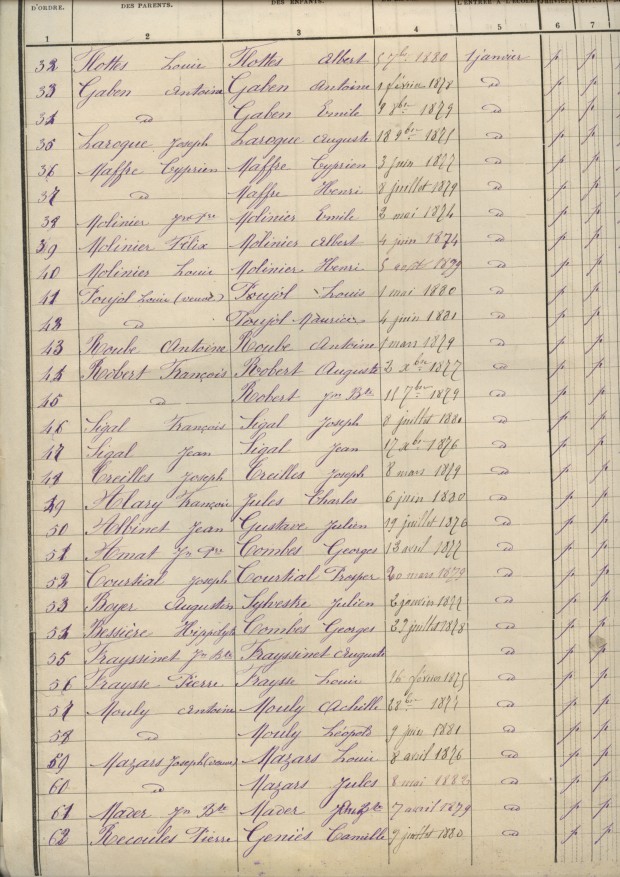 D'ORDRE. DES PARENTS. DES ENFANTS. L'ENTRÉE A L'ÉCOLE.
1 2 3 4 5 6 7
32 Flottes Louis Flottes Albert 5 7bre 1880 1 janvier p p
33 Gaben Antoine Gaben Antoine 1 février 1878 d p p
34 d Gaben Emile 9 8bre 1879 d p p
35 Laroque Joseph Laroque Auguste 18 9bre 1875 d p p
36 Maffre Cyprien Maffre Cyprien 3 juin 1877 d p p
37 d Maffre Henri 8 juillet 1879 d p p
38 Molinier Jn Pre Molinier Emile 2 mai 1874 d p p
39 Molinier Félix Molinier Albert 4 juin 1874 d p p
40 Molinier Louis Molinier Henri 5 août 1879 d p p
41 Poujol Louis (veuve) Poujol Louis 1 mai 1880 d p p
42 d Poujol Maurice 4 juin 1881 d p p
43 Roube Antoine Roube Antoine 1 mars 1879 d p p
44 Robert François Robert Auguste 2 xbre 1877 d p p
45 d Robert Jn Bte 11 7bre 1879 d p p
46 Sigal François Sigal Joseph 8 juillet 1880 d p p
47 Sigal Jean Sigal Jean 17 xbre 1876 d p p
48 Creilles Joseph Creilles Joseph 8 mars 1879 d p p
49 Alary François Jules Charles 6 juin 1880 d p p
50 Albinet Jean Gustave Julien 19 juillet 1876 d p p
51 Amat Jn Pre Combes Georges 13 avril 1877 d p p
52 Courtial Joseph Courtial Prosper 20 mars 1879 d p p
53 Boyer Augustin Sylvestre Julien 2 janvier 1877 d p p
54 Bessière Hippolyte Combes Georges 27 juillet 1878 d p p
55 Frayssinet Jn Bte Frayssinet Auguste d p p
56 Fraysse Pierre Fraysse Louis 16 février 1875 d p p
57 Mouly Antoine Mouly Achille 1877 d p p
58 d Mouly Léopold 9 juin 1881 d p p
59 Mazars Joseph (veuve) Mazars Louis 8 avril 1876 d p p
60 d Mazars Jules 8 mai 1882 d p p
61 Mader Jn Bte Mader Jn Bte 7 avril 1879 d p p
62 Recoules Pierre Geniès Camille 9 juillet 1880 d p p